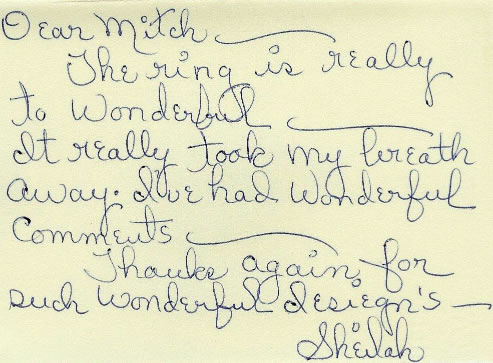 Dear Mitch
The ring is really
to Wonderful
It really took my breath
away. I've had Wonderful
Comments
Thanks again for
such Wonderful desiegn's —
Sheilah